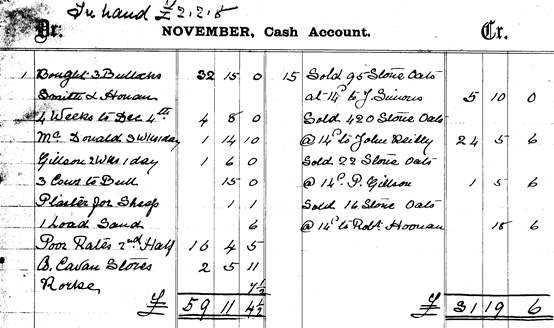 In hand £2,2,8
Dr. NOVEMBER, Cash Account. Cr.
1 Bought 3 Bullocks 32 15 0
Smith & Honan
4 Weeks to Dec 4th 4 8 0
Mc Donald 3 Wks 1 day 1 14 10
Gillson 2 Wks 1 day 1 6 0
3 Cows to Bull 15 0
Plaster for Sheep 1 1
1 Load Sand 6
Poor Rates 2nd Half 16 4 5
B. Cavan Stores 2 5 11
Rorke 7½
£ 59 11 4½
15 Sold 95 Stone Oats
at 14d to J. Simons 5 10 0
Sold 420 Stone Oats
@ 14d to John Reilly 24 5 6
Sold 22 Stone Oats
@ 14d. P. Gillson 1 5 6
Sold 16 Stone Oats
@ 14d to Robt Hoonan 18 6
£ 31 19 6